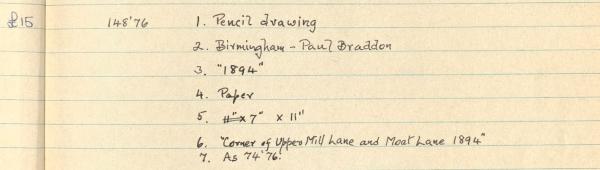 £15 148'76 1. Pencil drawing
2. Birmingham - Paul Braddon
3. "1894"
4. Paper
5. 11" x 7" x 11"
6. "Corner of Upper Mill Lane and Moat Lane 1894"
7. As 74'76.